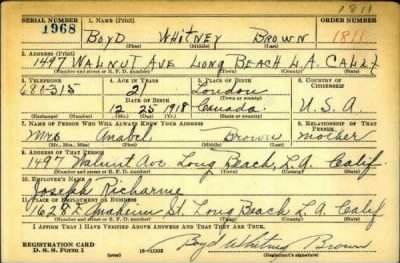 1811
SERIAL NUMBER 1. NAME (Print) ORDER NUMBER
1968 BOYD WHITNEY BROWN 1811
(First) (Middle) (Last)
2. ADDRESS (Print)
1497 WALNUT AVE LONG BEACH L.A. CALIF
(Number and street or R. F. D. number) (Town) (County) (State)
3. TELEPHONE 4. AGE IN YEARS 5. PLACE OF BIRTH 6. COUNTRY OF CITIZENSHIP
681-315 21 London
DATE OF BIRTH (Town or county)
12 25 1918 Canada U.S.A.
(Exchange) (Number) (Mo.) (Day) (Yr.) (State or country)
7. NAME OF PERSON WHO WILL ALWAYS KNOW YOUR ADDRESS 8. RELATIONSHIP OF THAT PERSON
Mrs Anabel Brown mother
(Mr., Mrs., Miss) (First) (Middle) (Last)
9. ADDRESS OF THAT PERSON
1497 Walnut Ave Long Beach, L.A. Calif.
(Number and street or R. F. D. number) (Town) (County) (State)
10. EMPLOYER'S NAME
Joseph Richarme
11. PLACE OF EMPLOYMENT OR BUSINESS
Anaheim St. Long Beach L.A. Calif
(Number and street or R. F. D. number) (Town) (County) (State)
I AFFIRM THAT I HAVE VERIFIED ABOVE ANSWERS AND THAT THEY ARE TRUE.
REGISTRATION CARD
D. S. S. Form 1 (over) Boyd Whitney Brown